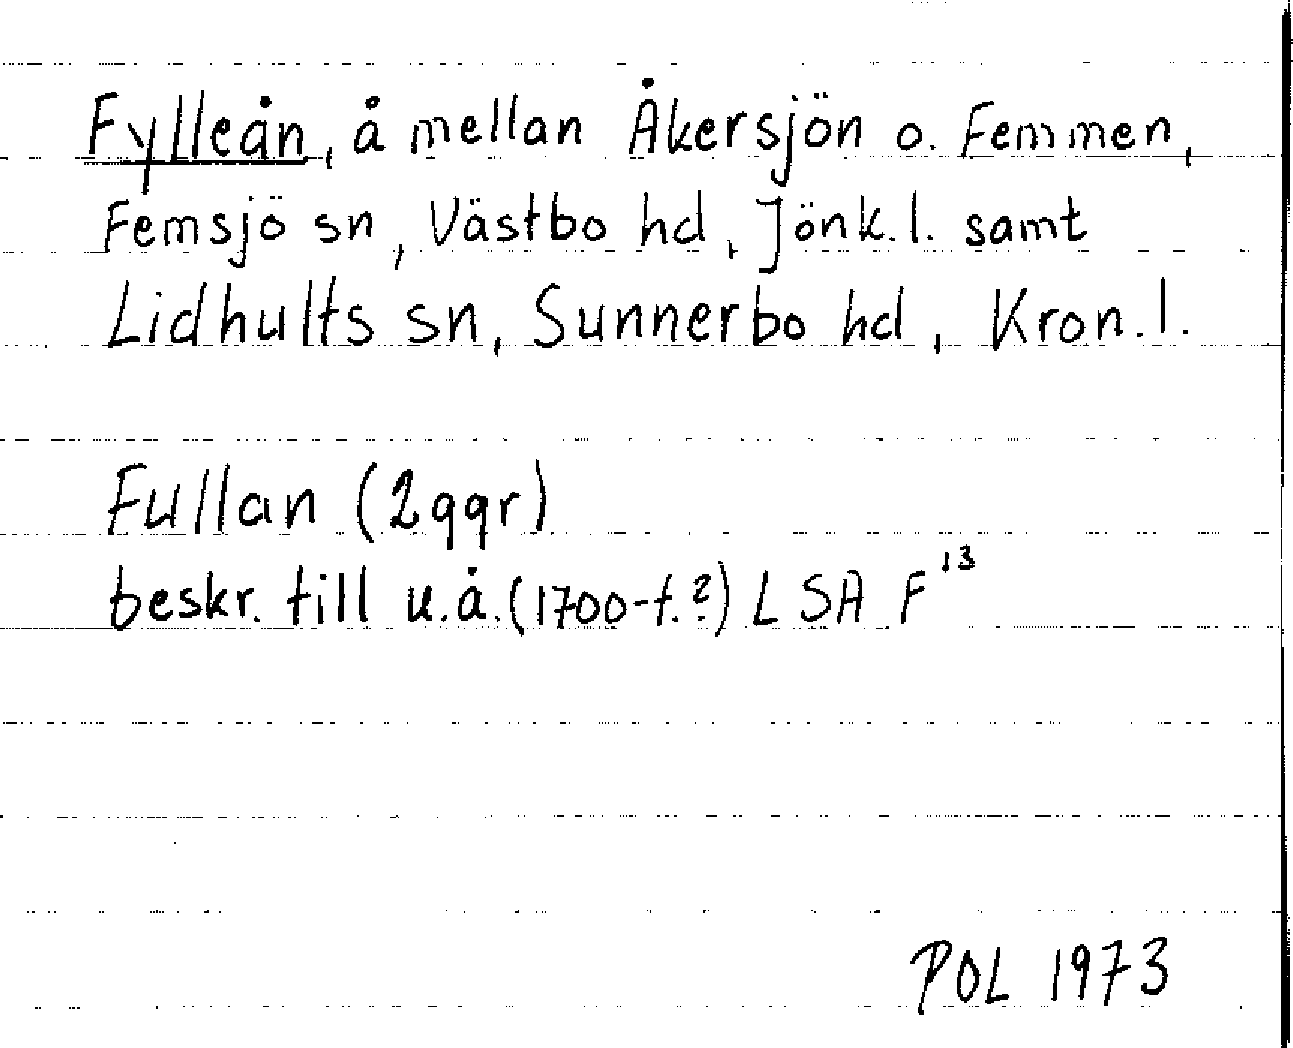 Fylleån, å mellan Åkersjön o. Femmen,
Femsjö sn, Västbo hd, Jönk. l. samt
Lidhults sn, Sunnerbo hd, Kron. l.
Fullan (2ggr)
beskr. till u.å. (1700-t.?) LSA F¹³
POL 1973